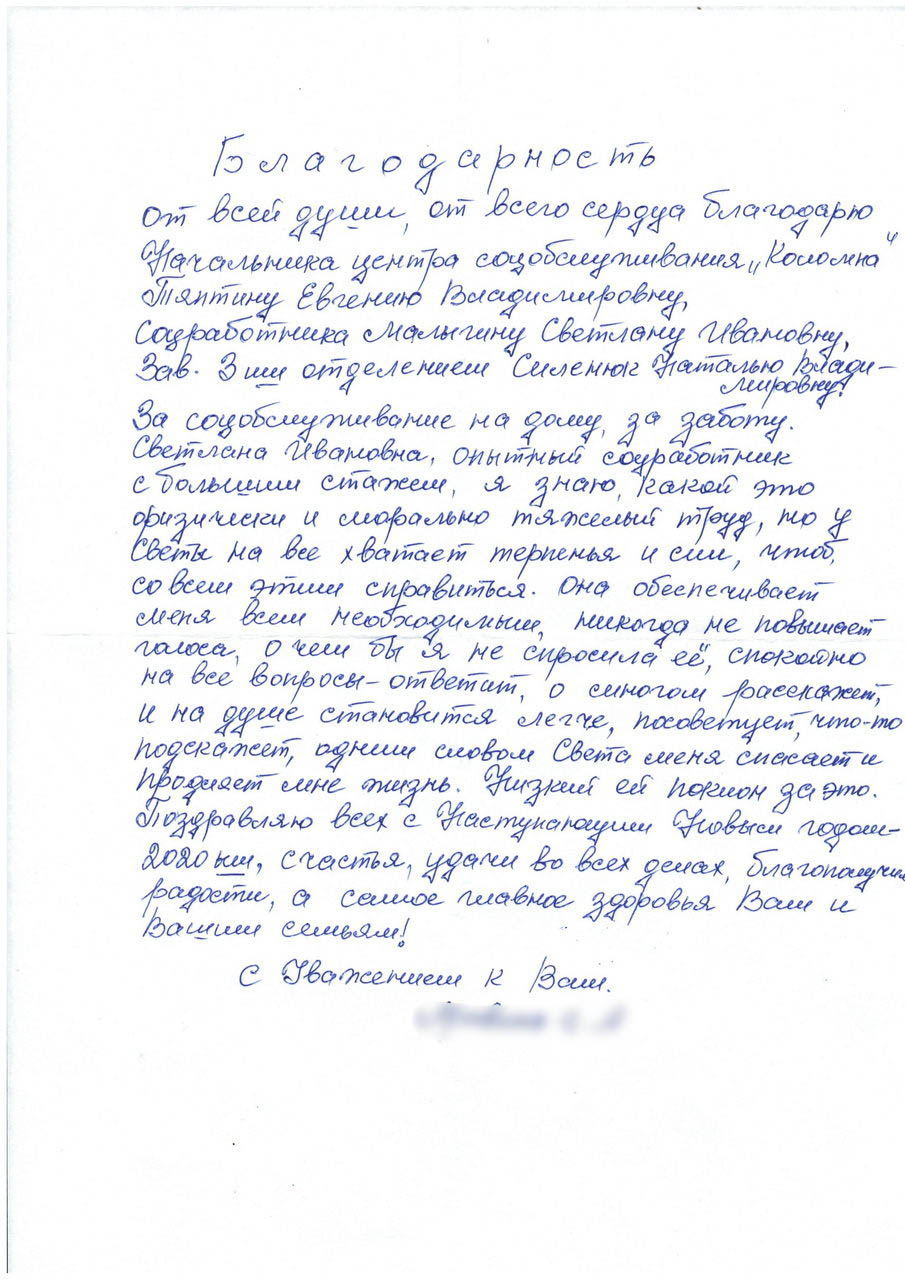 Благодарность
от всей души, от всего сердца благодарю
Начальника центра соцобслуживания „Коломна"
Тяптину Евгению Владимировну,
Соцработника Малыгину Светлану Ивановну,
Зав. 3им отделением Силенюк Наталью Влади-
мировну!
За соцобслуживание на дому, за заботу.
Светлана Ивановна, опытный соцработник
с большим стажем, я знаю, какой это
физически и морально тяжелый труд, но у
Светы на все хватает терпенья и сил, чтоб,
со всем этим справиться. Она обеспечивает
меня всем необходимым, никогда не повышает
голоса, о чем бы я не спросила её, спокойно
на все вопросы-ответит, о многом расскажет,
и на душе становится легче, посоветует, что-то
подскажет, одним словом Света меня спасает и
продляет мне жизнь. Низкий ей поклон за это.
Поздравляю всех с Наступающим Новым годом-
2020ым, счастья, удачи во всех делах, благополучия
радости, а самое главное здоровья Вам и
Вашим семьям!
С Уважением к Вам.